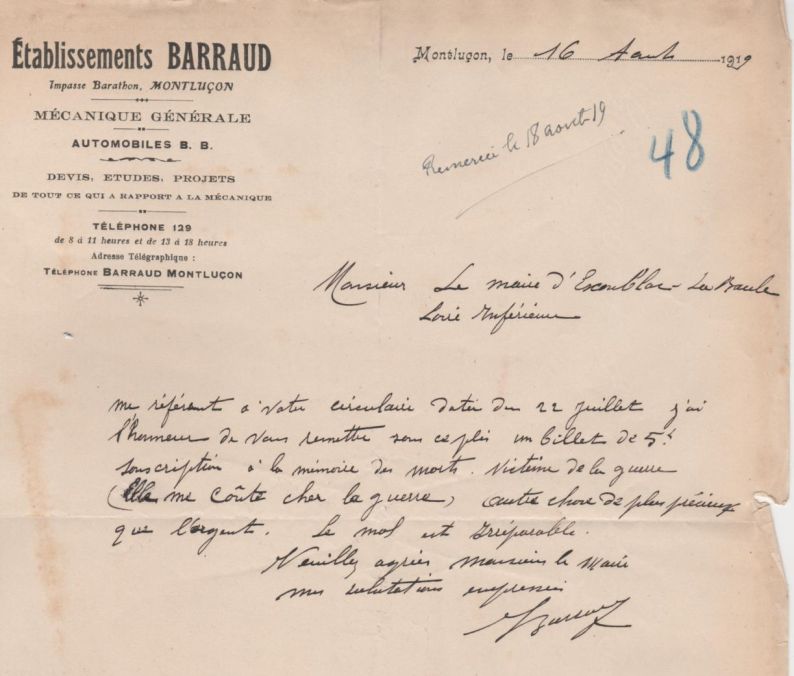 Établissements BARRAUD
Impasse Barathon, MONTLUÇON
MÉCANIQUE GÉNÉRALE
AUTOMOBILES B. B.
DEVIS, ETUDES, PROJETS
DE TOUT CE QUI A RAPPORT A LA MÉCANIQUE
TÉLÉPHONE 129
de 8 à 11 heures et de 13 à 18 heures
Adresse Télégraphique :
TÉLÉPHONE BARRAUD MONTLUÇON
Montluçon, le 16 Aout 1919
Remercié le 18 aout 19
48
Monsieur Le maire d'Escoublac-La Baule
Loire Inférieure
me référent à votre circulaire datée du 22 juillet j'ai
l'honneur de vous remettre sous ce plis un billet de 5f
souscription à la mémoire des morts. Victime de la guerre
(Elle me coûte cher la guerre) autre chose de plus précieux
que l'argent. Le mal est irréparable.
Veuillez agréer monsieur le Maire
mes salutations empressées
Barraud